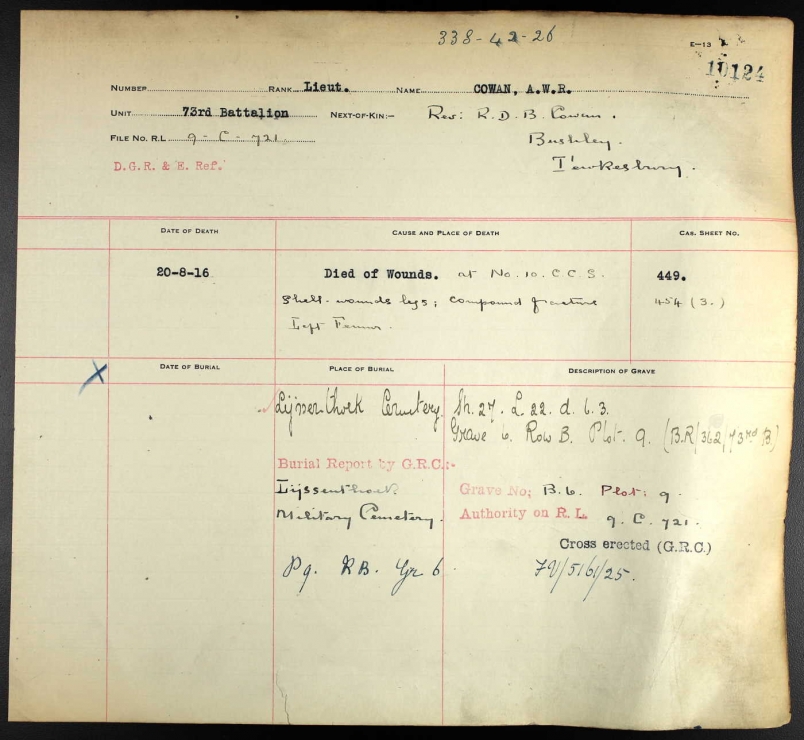 338-42-26
E-13
10124
NUMBER RANK Lieut. NAME COWAN, A.W.R.
UNIT 73rd Battalion NEXT-OF-KIN:- Rev: R.D.B. Cowan.
FILE NO. R.L. 9-C-721. Bushley.
D.G.R. & E. Ref. Tewkesbury.
DATE OF DEATH CAUSE AND PLACE OF DEATH CAS. SHEET NO.
20-8-16 Died of Wounds. at No. 10. C.C.S. 449.
Shell-wounds legs; compound fracture 454 (3.)
Left Femur.
DATE OF BURIAL PLACE OF BURIAL DESCRIPTION OF GRAVE
X
Lijssenthoek Cemetery. Sh. 27. L 22. d. 6. 3.
Grave 6. Row B. Plot. 9. (B.R/362, 73rd B)
Burial Report by G.R.C.:-
Lijssenthoek Grave No; B.6. Plot; 9.
Military Cemetery. Authority on R. L. 9. C. 721.
Cross erected (G.R.C.)
P9. RB. Gr 6